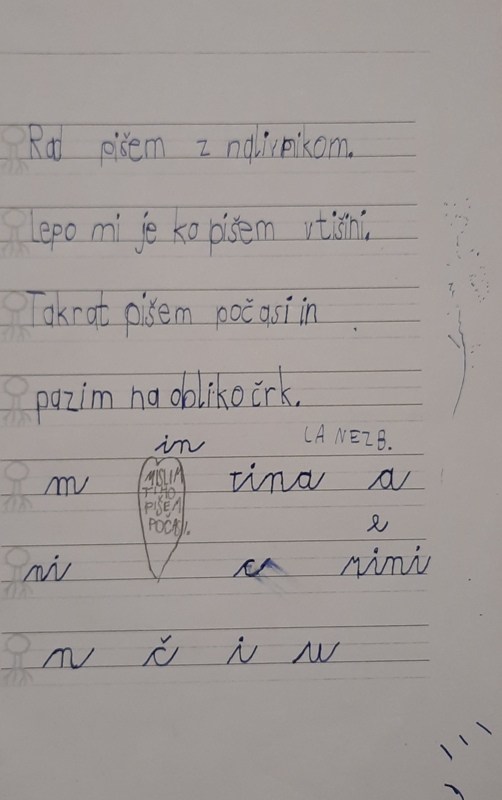 Rad pišem z nalivpikom.
Lepo mi je ko pišem v tišini.
Takrat pišem počasi in
pazim na obliko črk.
in
LA NEZB.
m
MISLIM
TIHO
PIŠEM
POČASI.
tina a
e
ni
c
nini
n č i u